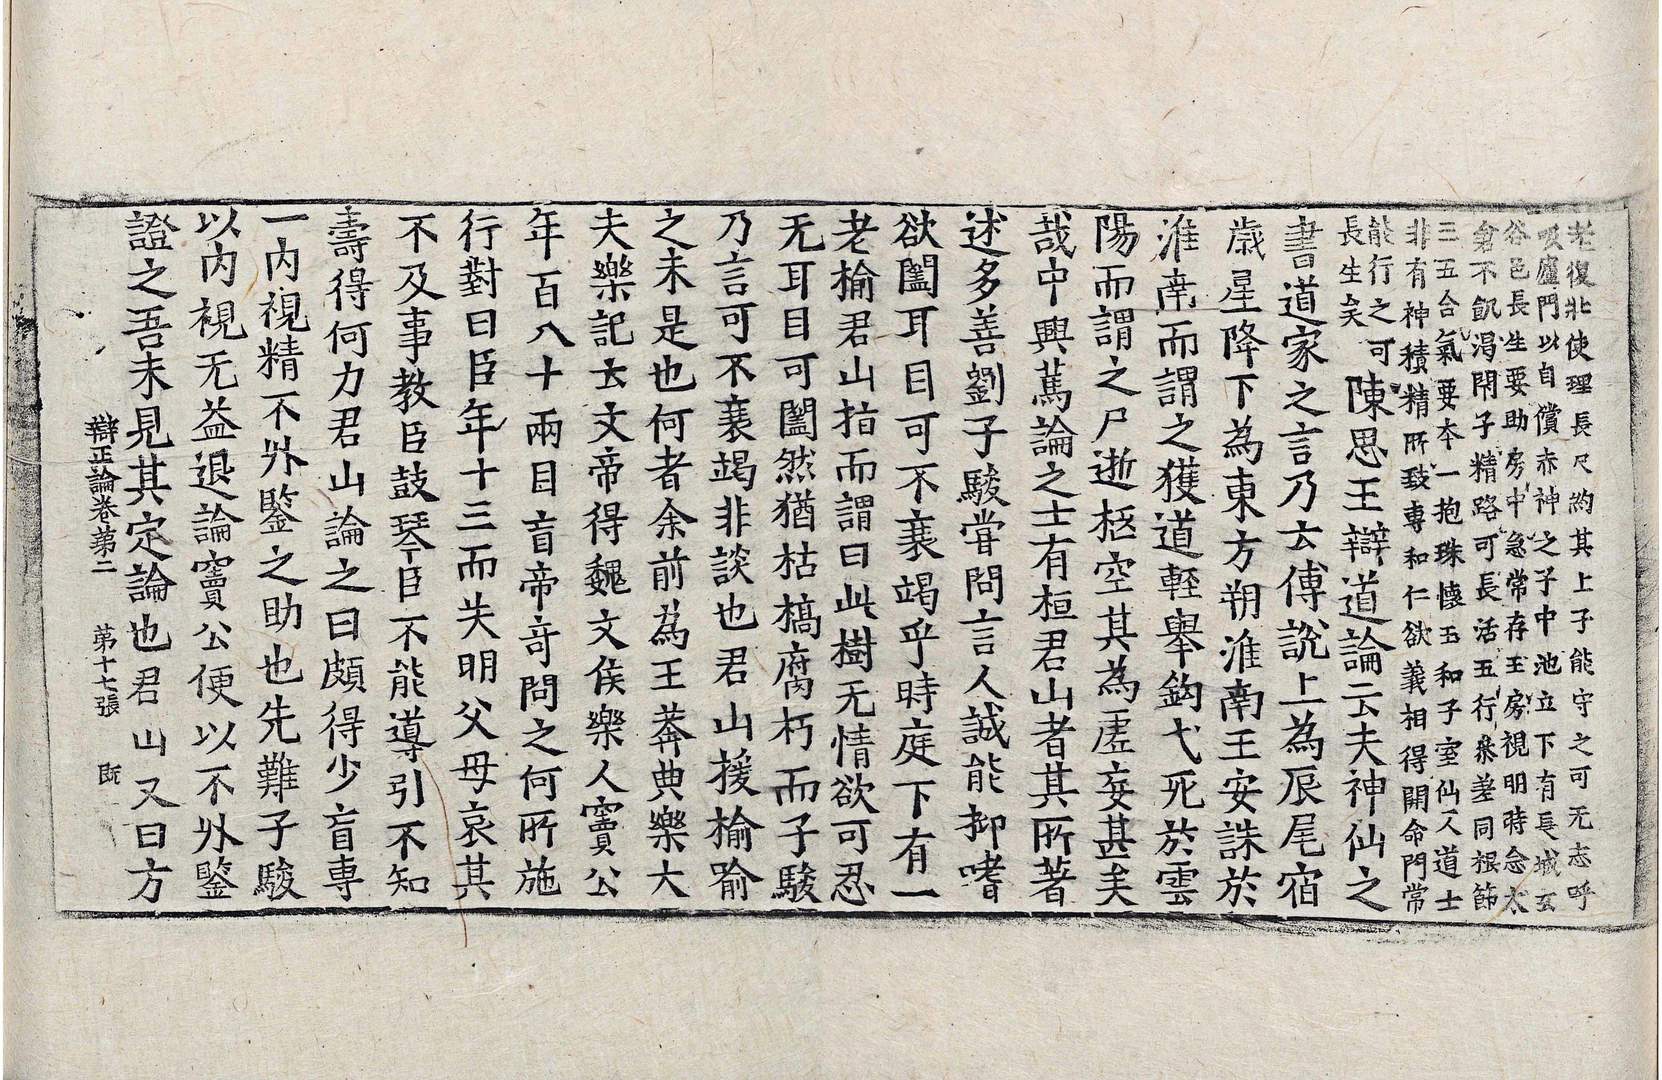 老復壯使理長尺約其上子能守之可无志呼
吸廬門以自償赤神之子中池立下有長城玄
谷邑長生要助房中急常存玉房視明時念太
倉不飢渴閇子精路可長活五行叅差同根節
三五合氣要本一抱珠懷玉和子室仙人道士
非有神積精所致專和仁欲義相得開命門常
能行之可
長生矣
陳思王辯道論云夫神仙之
書道家之言乃云傅說上為辰尾宿
歲星降下為東方朔淮南王安誅於
淮南而謂之獲道輕舉鈎弋死於雲
陽而謂之尸逝柩空其為虛妄甚矣
哉中興篤論之士有桓君山者其所著
述多善劉子駿嘗問言人誠能抑嗜
欲闔耳目可不衰竭乎時庭下有一
老榆君山指而謂曰此樹无情欲可忍
无耳目可闔然猶枯槁腐朽而子駿
乃言可不衰竭非談也君山援榆喻
之未是也何者余前為王莽典樂大
夫樂記云文帝得魏文侯樂人竇公
年百八十兩目盲帝奇問之何所施
行對曰臣年十三而失明父母哀其
不及事教臣鼓琴臣不能導引不知
壽得何力君山論之曰頗得少盲專
一内視精不外鑒之助也先難子駿
以内視无益退論竇公便以不外鑒
證之吾未見其定論也君山又曰方
辯正論卷第二 第十七張 旣